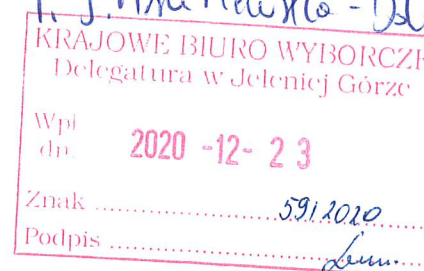 KRAJOWE BIURO WYBORCZE
Delegatura w Jeleniej Górze
Wpł
dn. 2020 -12- 23
Znak ..................5912020..........
Podpis